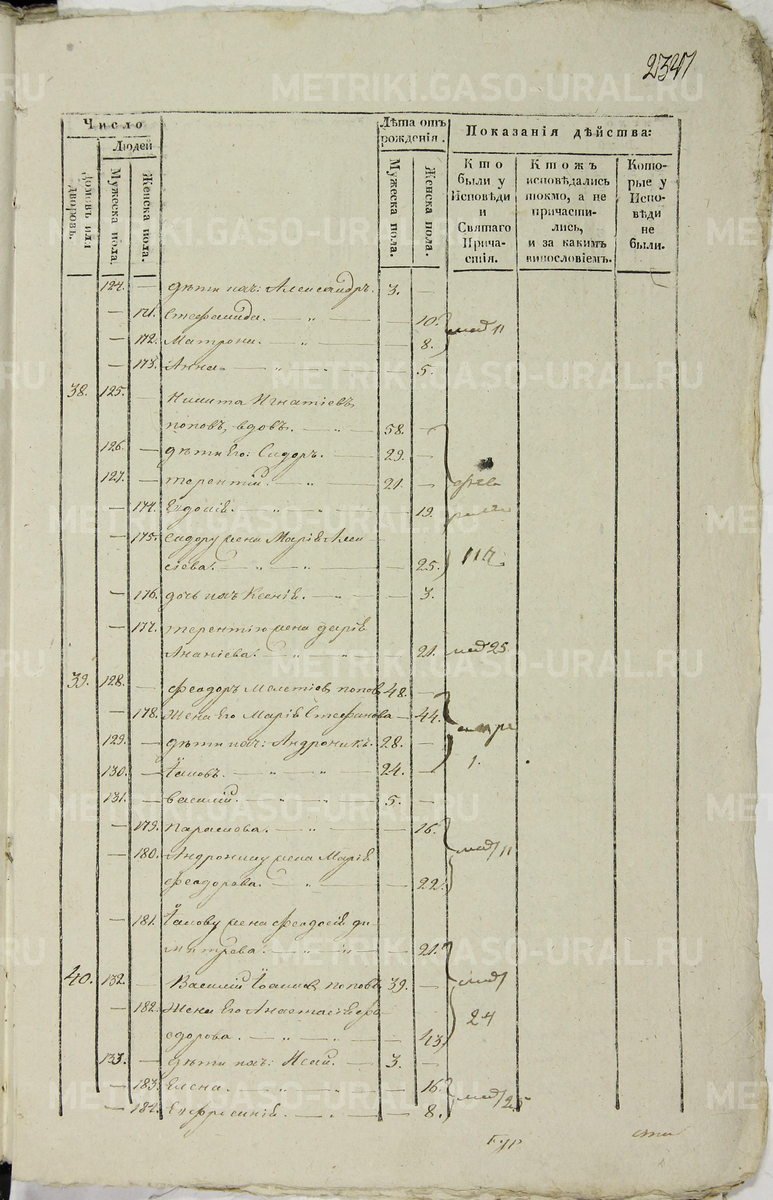 2347
METRIKI.GASO-URAL.RU
Число
Людей
Домовъ или дворовъ.
Мужеска пола.
Женска пола.
Лѣта отъ рожденія.
Мужеска пола.
Женска пола.
Показанія дѣйства:
Кто были у Исповѣди и Святаго Причастія.
Ктожъ исповѣдались токмо, а не причастились, и за какимъ винословіемъ.
Которые у Исповѣди не были.
124. — дѣти ихъ: Александръ. 3. —
— 171. Стефанида. — „ — — 10.
— 172. Матрона. — „ — — 8.
— 173. Анна — „ — — 5.
38. 125. — Никита Игнатіевъ
поповъ, вдовъ. — „ — 58. —
126. — дѣти Его: Сидоръ. — 29. —
127. — терентій. — „ — 21. —
— 174. Евдокія. „ „ — 19.
— 175. сидору жена Марія Алек
сіева. — „ — „ — 25.
11.
— 176. дочь ихъ Ксенія. — „ — 3.
— 177. терентію жена дарія
Ананіева. „ „ 21. 25
39. 128. — Феодоръ Мелетіев поповъ 48. —
— 178. Жена Его Марія Стефанова — 44.
129. — дѣти ихъ: Андроникъ. 28. —
1.
130. — Іаковъ. — „ — „ — 24. —
131. — василій. „ „ 5. —
— 179. параскова. — „ — 16.
11
— 180. Андронику жена Марія
Феодорова. — „ — 22.
— 181. Іакову жена Феодосія ди
митрева. — „ — „ — 21.
40. 132. — Василій Іоаннов поповъ 39. —
— 182. Жена Его Анастасія Фе
24
одорова. — „ — „ — 43.
133. — дѣти ихъ: Исай. — 3. —
— 183. Елена. — „ — „ — 16.
25
— 184. Евфросинія. — „ — 8.